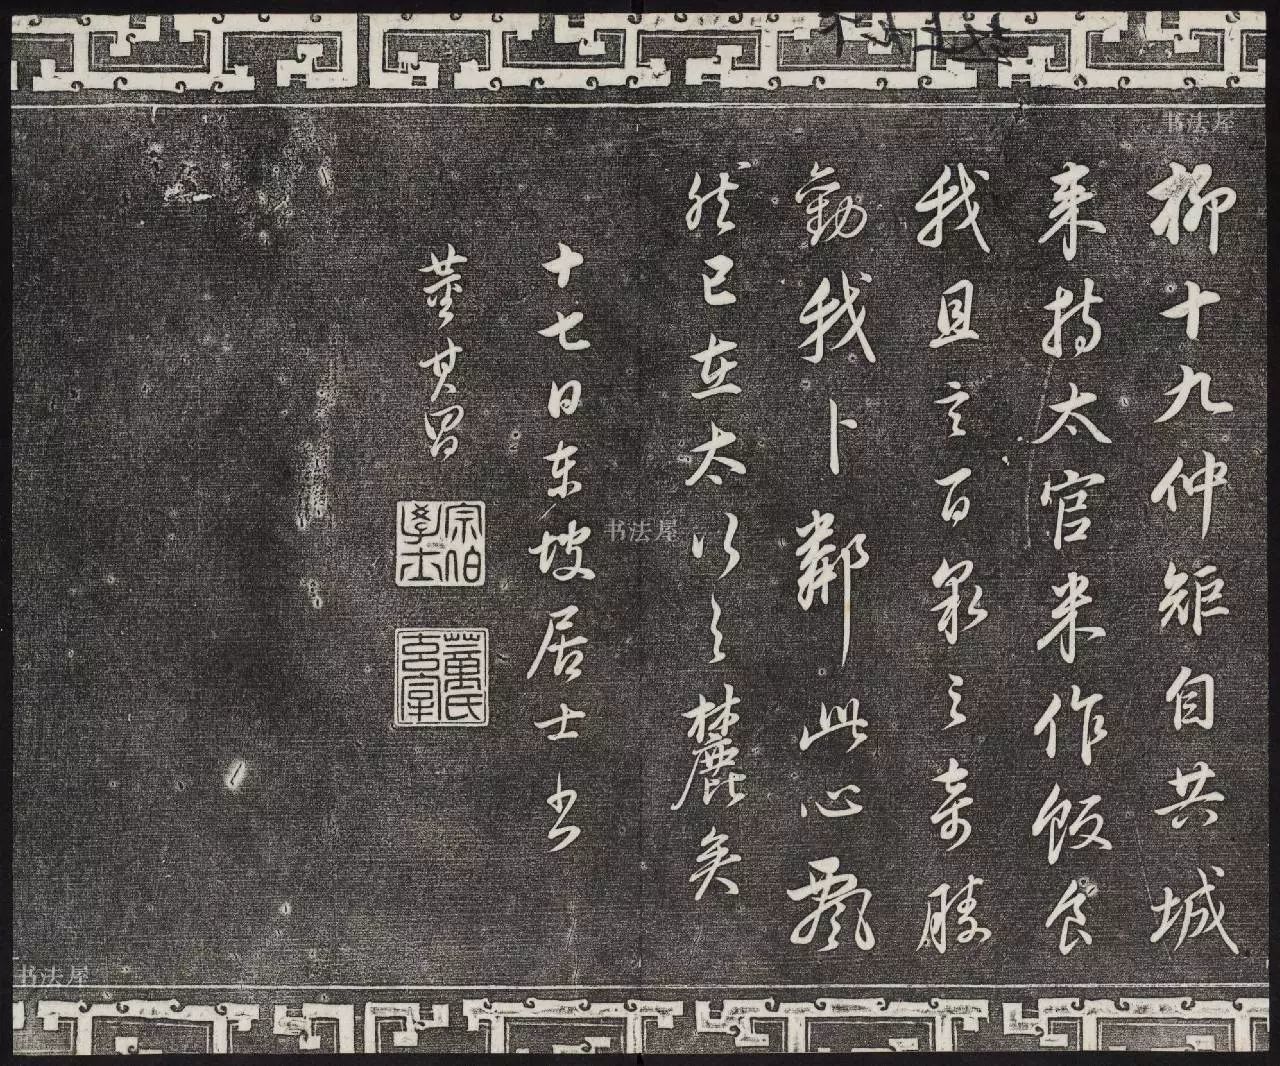 柳十九仲矩自共城
来持太官米作飯食
我且言百泉之奇勝
勸我卜鄰此心飄
然已在太行之麓矣
十七日东坡居士书
董其昌
宗伯學士
董氏玄宰
书法屋
书法屋
书法屋